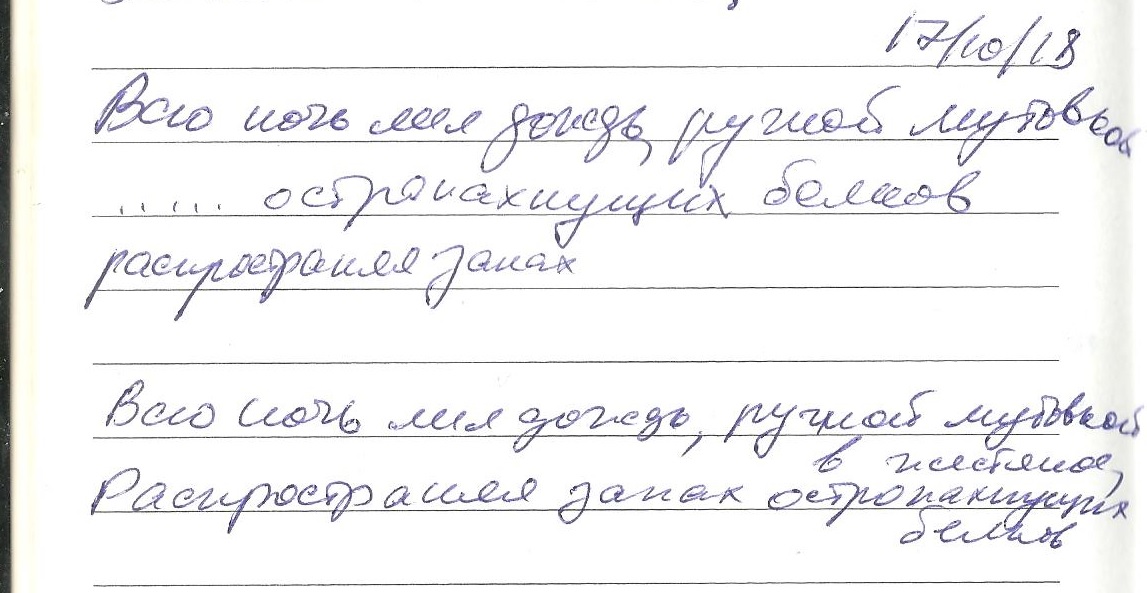 17/10/18
Всю ночь лил дождь, ручной мутовкой
..... остропахнущих белков
распространяя запах
Всю ночь лил дождь, ручной мутовкой
в жестяной,
Распространяя запах остропахнущих
белков